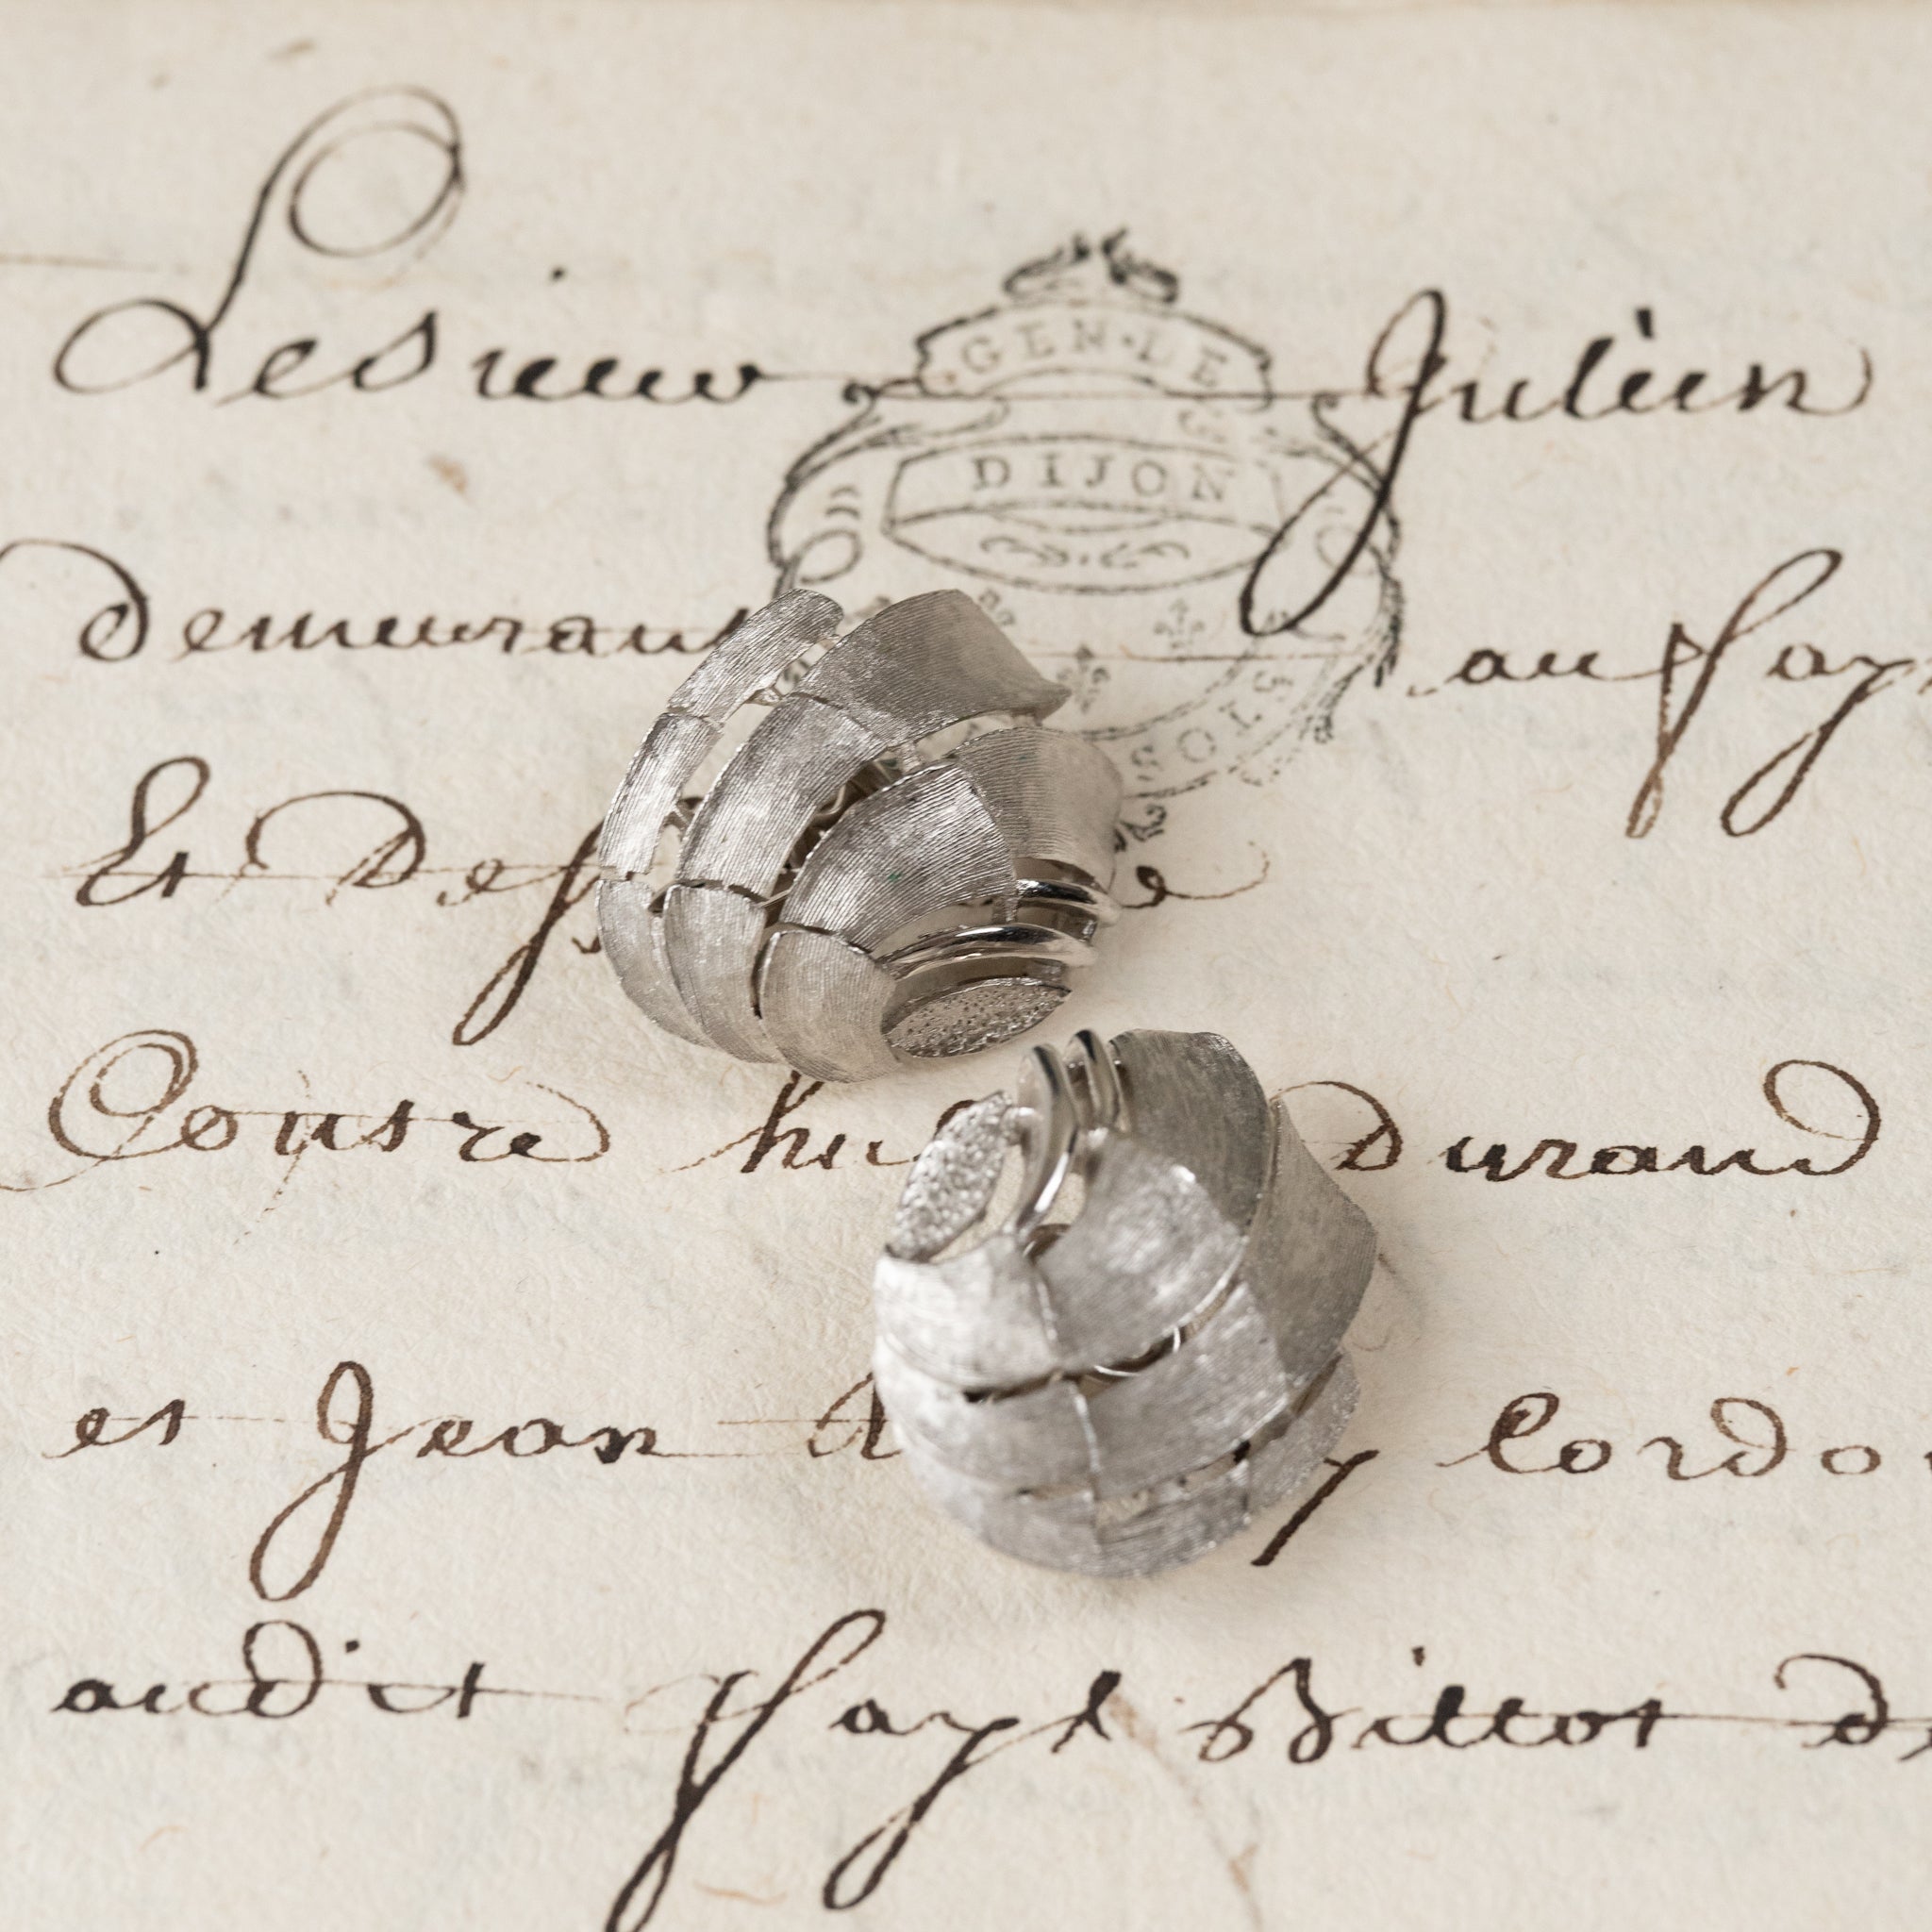 Le sieur Julien
GEN·DE
DIJON
SOLS
demeurant au fay
Et Deff
Contre hu Durand
et Jean Cordo
audit fayl Billot de